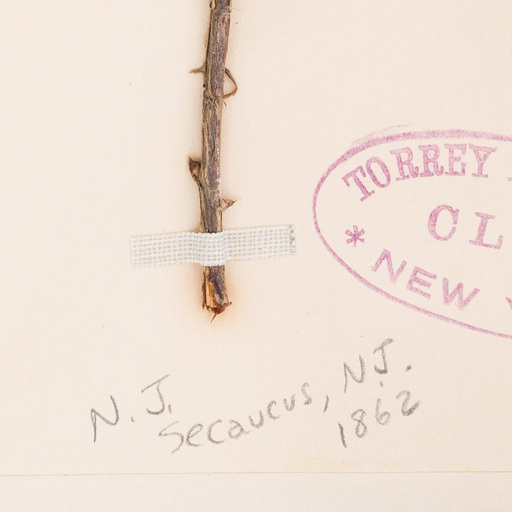 TORREY
CL
* NEW
N.J.
Secaucus, N.J.
1862